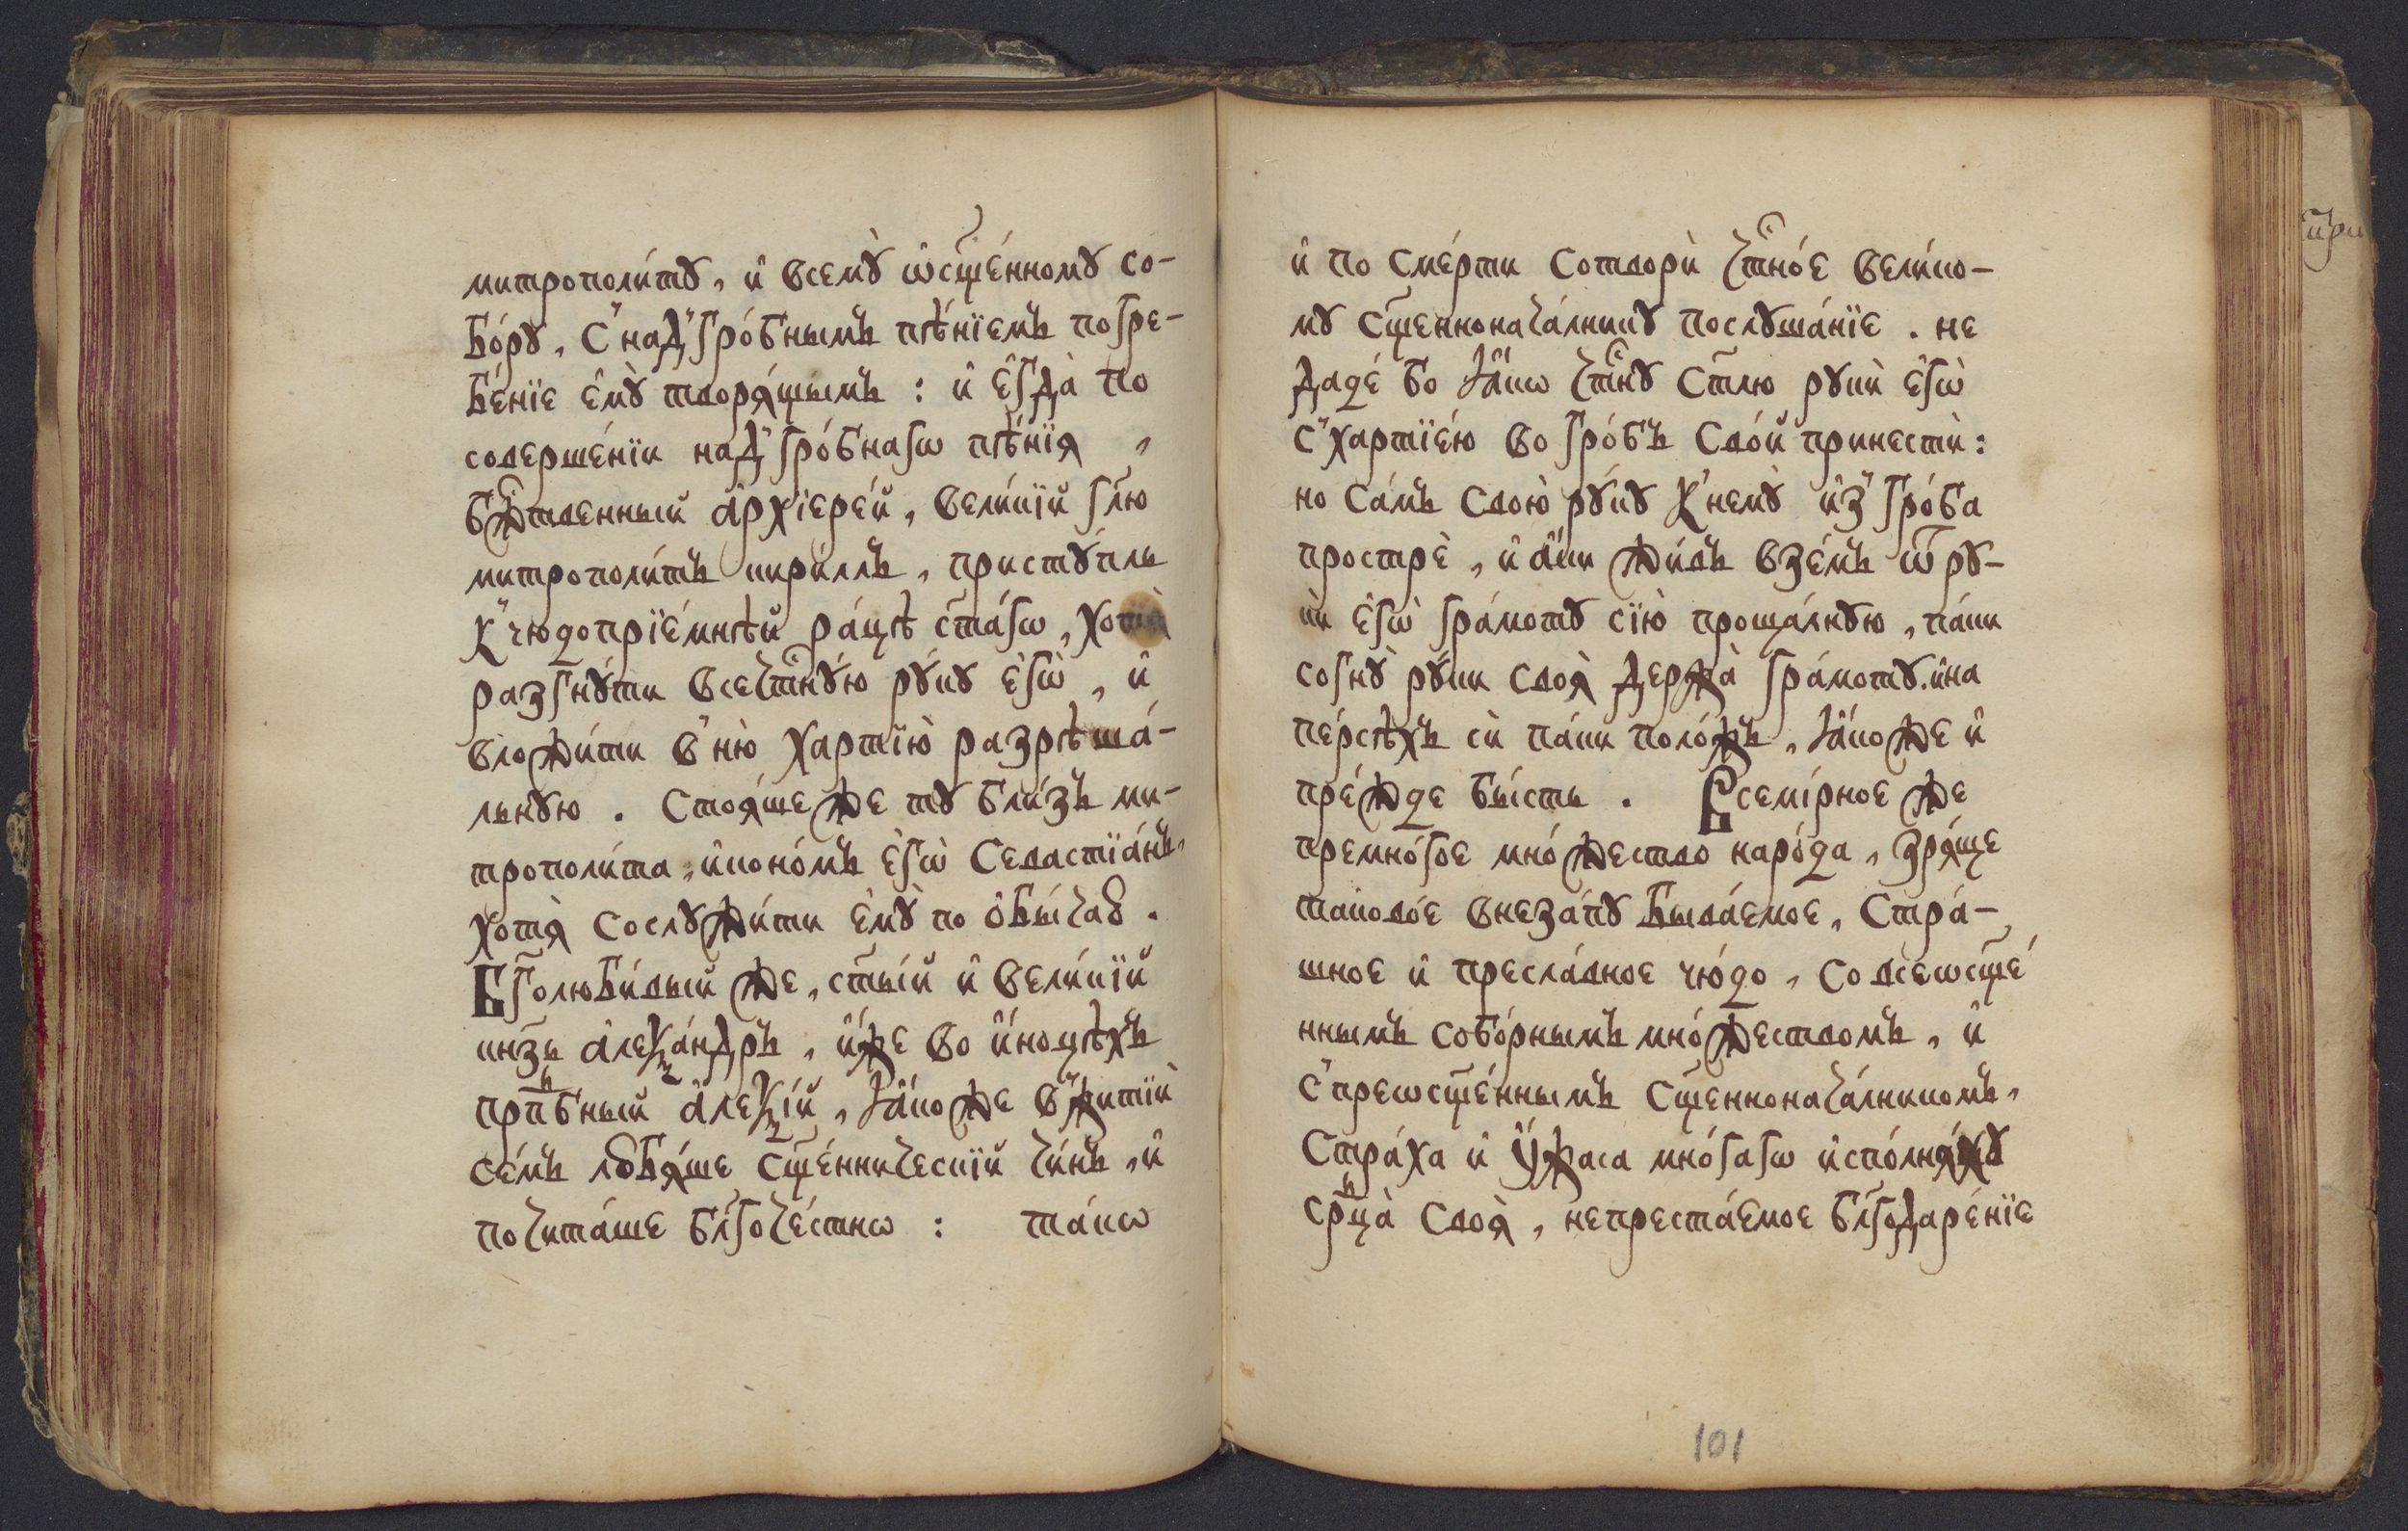 митрополи́тꙋ, и҆ всемꙋ̀ ѡ҆сщ҃е́нномꙋ со-
бо́рꙋ, с̾ над̾гро́бнымъ пѣ́нїемъ погре-
бе́нїе є҆мꙋ̀ творѧ́щымъ : и҆ є҆гда̀ по
соверше́нїи над̾гро́бнагѡ пѣ́нїѧ ,
бж҇твенный а҆рхїере́й, вели́кїй гл҃ю
митрополи́тъ кири́ллъ, пристꙋ́пль
к̾ чюдопрїе́мнѣй ра́цѣ ст҃а́гѡ, хотѧ̀
разгнꙋ́ти всечⷭ҇тнꙋ́ю рꙋ́кꙋ є҆гѡ̀, и҆
вложи́ти в̾ ню̀ хартїю̀ разрѣша́-
льнꙋю . стоѧ́ше же тꙋ бли́зъ ми-
трополи́та, и҆коно́мъ є҆гѡ̀ севастїа́нъ,
хотѧ̀ сослꙋжи́ти є҆мꙋ̀ по ѻ҆бы́чаю .
Бг҃олюби́вый же, ст҃ы́й и҆ вели́кїй
кнѧ҃зь а҆леѯа́ндръ, и҆́же во и҆́ноцѣхъ
прпⷣбный а҆леѯі́й, ꙗ҆́коже в̾ житїѝ
се́мъ любѧ́ше сщ҃е́нническїй чи́нъ, и҆
почита́ше бл҃гоче́стнѡ : та́кѡ
и҆ по сме́рти сотворѝ чⷭ҇тно́е вели́ко-
мꙋ сщ҃енноначáлникꙋ послꙋша́нїе . не
даде́ бо ꙗ҆́кѡ чⷭ҇тнꙋ ст҃лю рꙋкѝ є҆гѡ̀
с̾ хартїе́ю во гро́бъ сво́й принестѝ :
но са́мъ свою̀ рꙋ́кꙋ к̾ немꙋ̀ и҆з̾ гро́ба
прострѐ, и҆ а҆́ки жи́въ взе́мъ ѿ рꙋ-
кѝ є҆гѡ̀ гра́мотꙋ сїю̀ проща́лнꙋю, па́ки
согнꙋ̀ рꙋ́ки своѧ̀ держа̀ гра́мотꙋ. и҆ на
пе́рсѣхъ сѝ па́ки поло́жъ, ꙗ҆́коже и҆
пре́жде бы́сть . Всемі́рное же
премно́гое мно́жество наро́да, зрѧ́ще
таково́е внеза́пꙋ быва́емое, стра́-
шное и҆ пресла́вное чю́до, со всеѡсщ҃е́
ннымъ собо́рнымъ мно́жествомъ, и҆
с̾ преѡсщ҃е́ннымъ сщ҃енноначáлникомъ,
стра́ха и҆ ᲂу҆́жаса мно́гагѡ и҆спо́лнѧхꙋ
срⷣца̀ своѧ̀, непреста́емое бл҃годаре́нїе
101